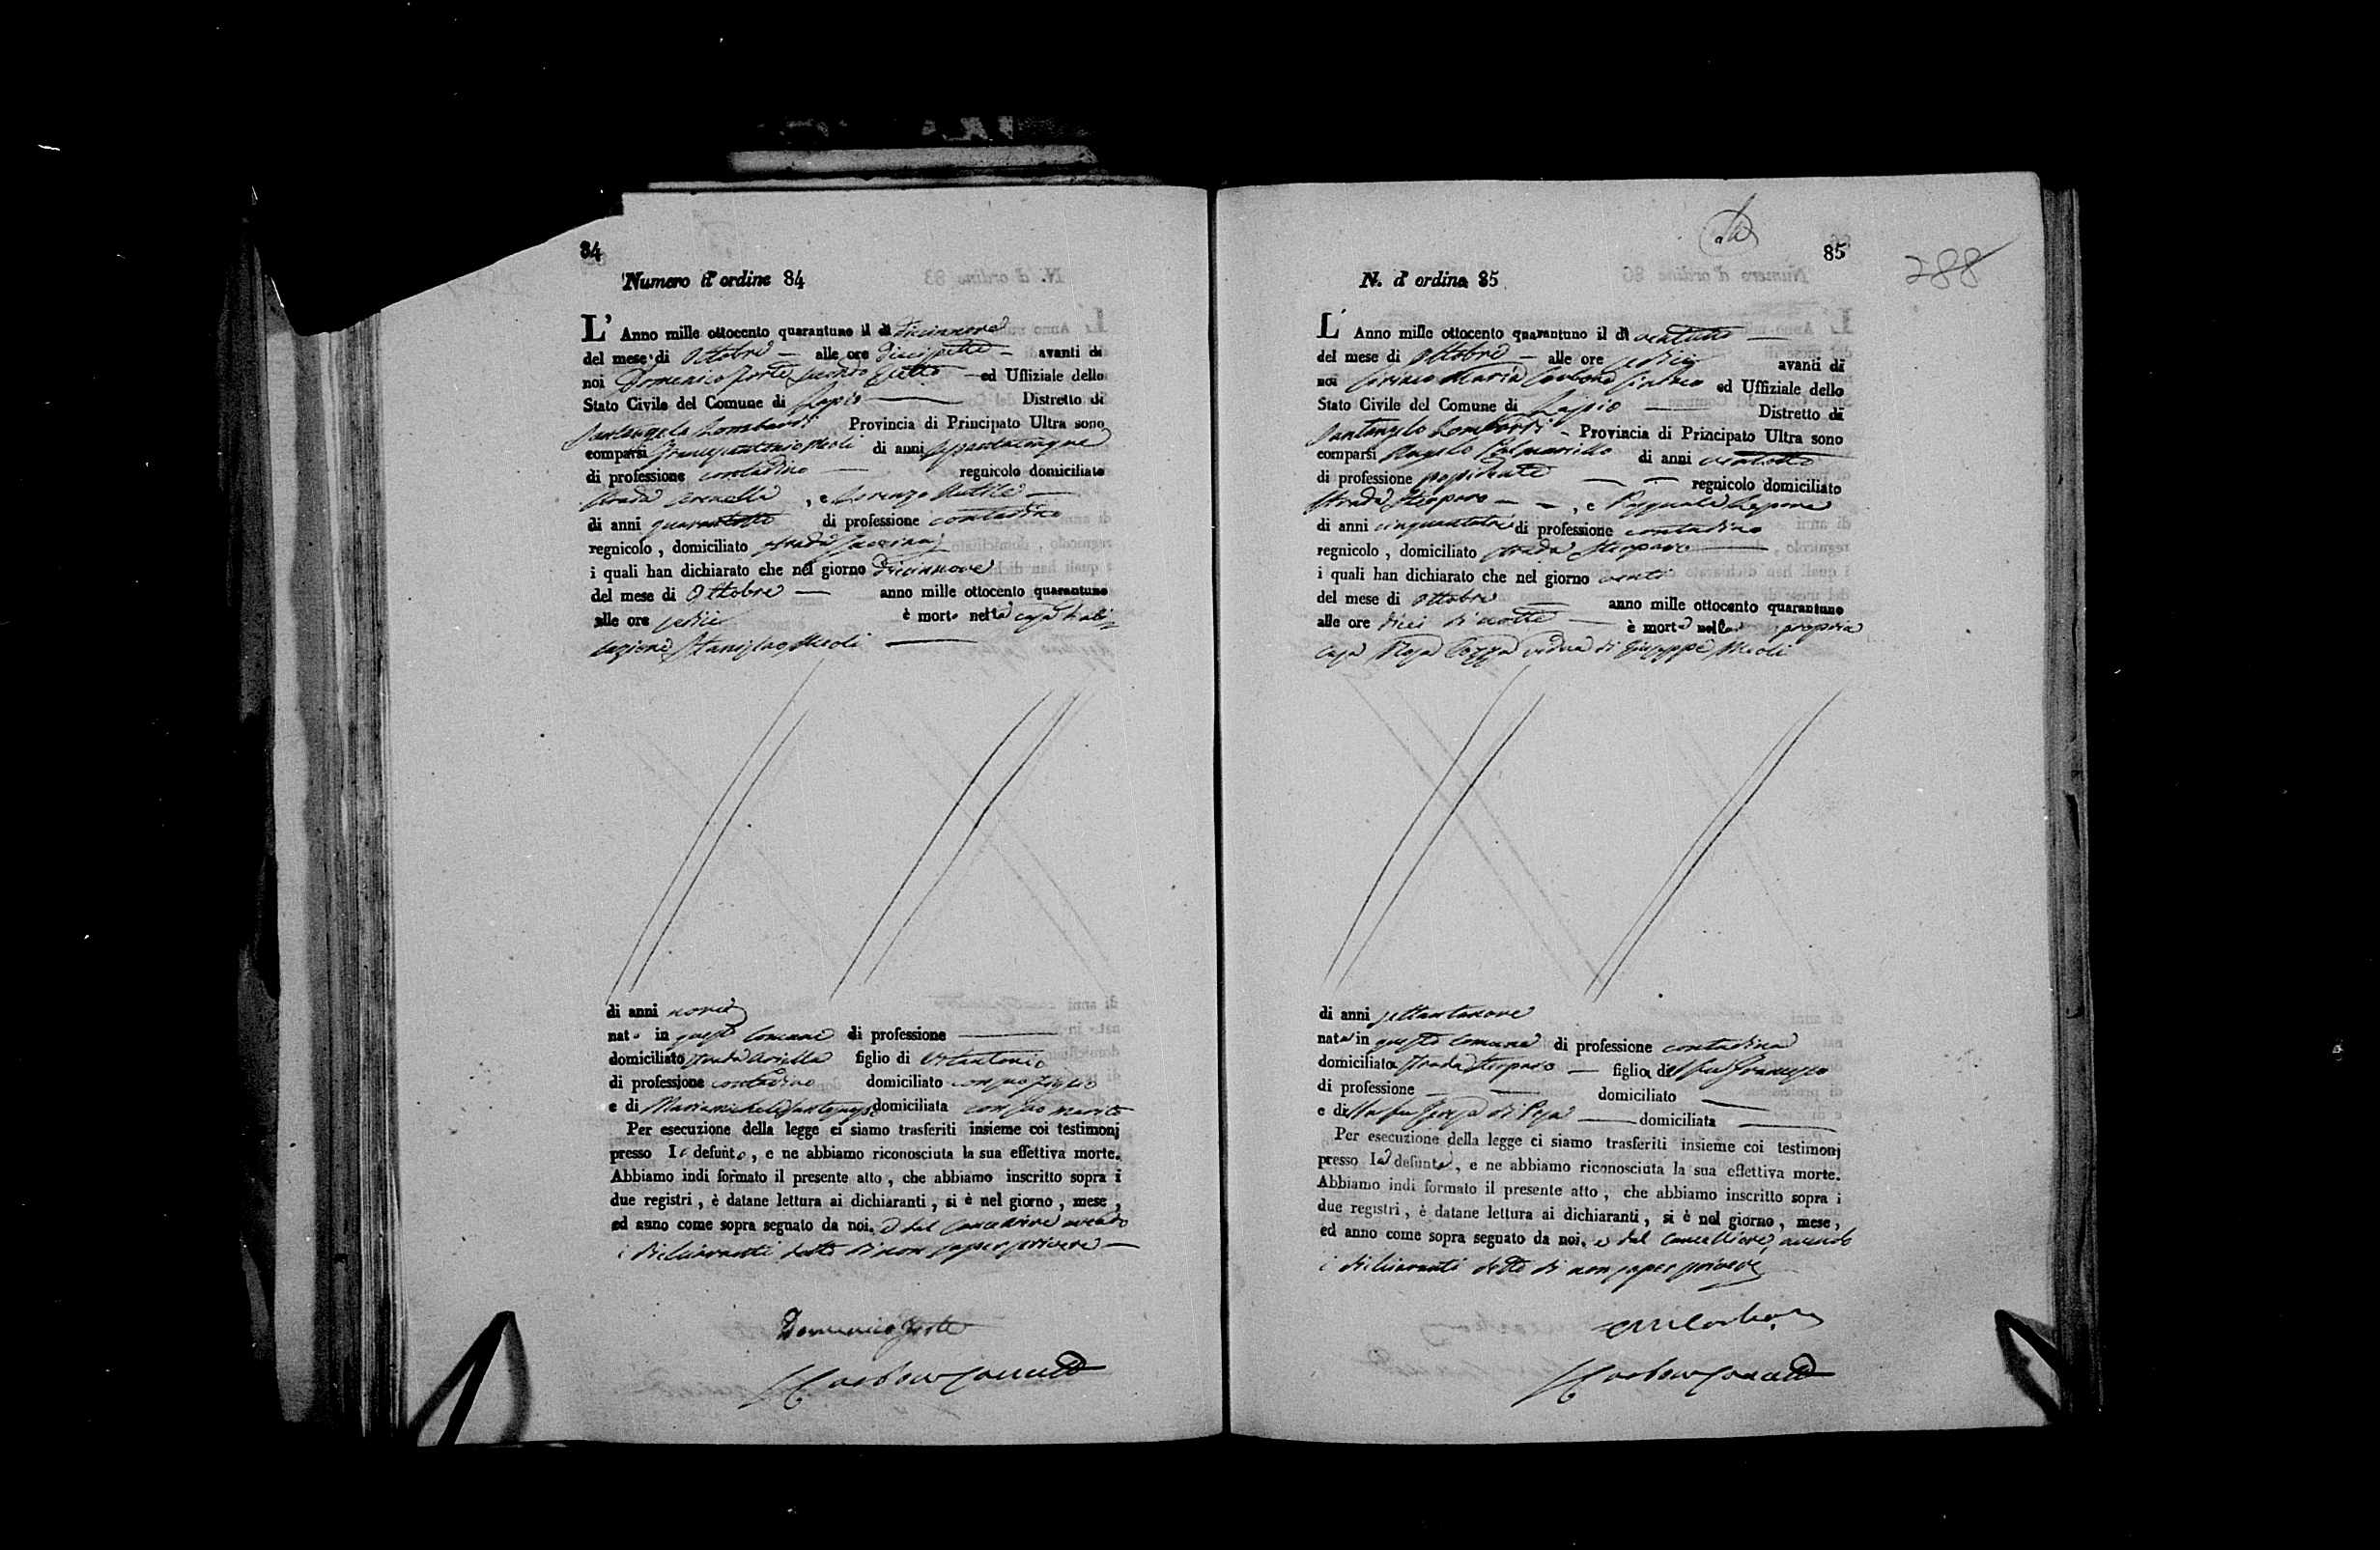 84
Numero d' ordine 84
L' Anno mille ottocento quarantuno il dì diciannove
del mese di Ottobre alle ore diecisette avanti di
noi Domenico Forte secondo Eletto ed Uffiziale dello
Stato Civile del Comune di Lapio Distretto di
Santangelo Lombardi Provincia di Principato Ultra sono
comparsi Francescantonio Meoli di anni
di professione contadino regnicolo domiciliato
strada , e Lorenzo
di anni quarantotto di professione contadino
regnicolo , domiciliato strada
i quali han dichiarato che nel giorno diciannove
del mese di Ottobre anno mille ottocento quarantuno
alle ore sedici è morto nella casa d'abi=
tazione Stanislao Meoli
di anni nove
nato in questo Comune di professione
domiciliato strada figlio di Vitantonio
di professione contadino domiciliato con suo figlio
e di domiciliata con suo marito
Per esecuzione della legge ci siamo trasferiti insieme coi testimonj
presso lo defunto, e ne abbiamo riconosciuta la sua effettiva morte.
Abbiamo indi formato il presente atto , che abbiamo inscritto sopra i
due registri , è datane lettura ai dichiaranti , si è nel giorno , mese ,
ed anno come sopra segnato da noi. e dal Cancelliere avendo
i dichiaranti detto di non saper scrivere
Domenico Forte
85
288
N. d' ordine 85
L' Anno mille ottocento quarantuno il dì ventuno
del mese di Ottobre alle ore sedici avanti di
noi Maria Carbone Sindaco ed Uffiziale dello
Stato Civile del Comune di Lapio Distretto di
Santangelo Lombardi Provincia di Principato Ultra sono
comparsi Angelo di anni ventotto
di professione regnicolo domiciliato
strada , e Pasquale Lepore
di anni cinquantatre di professione contadino
regnicolo , domiciliato strada
i quali han dichiarato che nel giorno venti
del mese di Ottobre anno mille ottocento quarantuno
alle ore dieci di notte è morta nella propria
casa Rosa vedova di Giuseppe Meoli
di anni settantanove
nata in questo Comune di professione contadina
domiciliata strada figlia del fu Francesco
di professione domiciliato
e della fu domiciliata
Per esecuzione della legge ci siamo trasferiti insieme coi testimonj
presso la defunta, e ne abbiamo riconosciuta la sua effettiva morte.
Abbiamo indi formato il presente atto , che abbiamo inscritto sopra i
due registri , è datane lettura ai dichiaranti , si è nel giorno , mese ,
ed anno come sopra segnato da noi. e dal Cancelliere, avendo
i dichiaranti detto di non saper scrivere